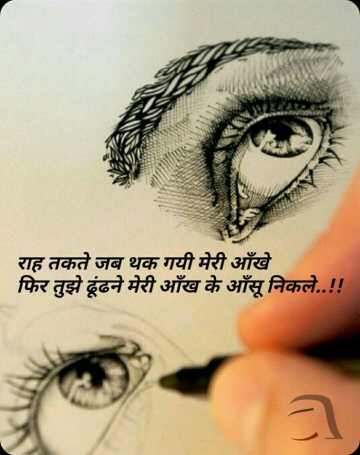 राह तकते जब थक गयी मेरी आँखे
फिर तुझे ढूंढने मेरी आँख के आँसू निकले..!!